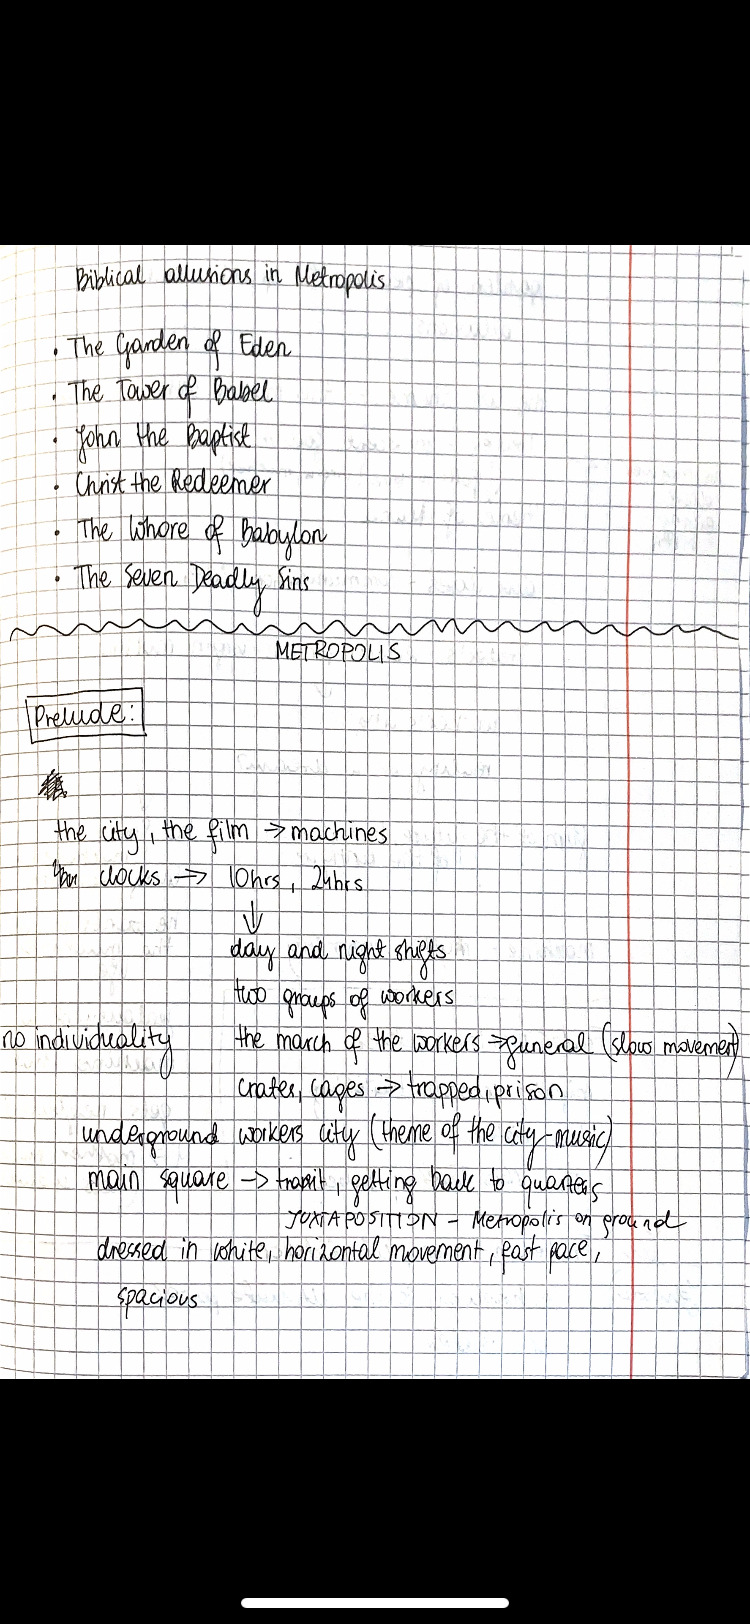 Biblical allusions in Metropolis
• The Garden of Eden
• The Tower of Babel
• John the Baptist
• Christ the Redeemer
• The Whore of Babylon
• The Seven Deadly Sins
METROPOLIS
Prelude:
the city, the film → machines
clocks → 10hrs, 24hrs
↓
day and night shifts
two groups of workers
no individuality the march of the workers → funeral (slow movement)
crates, cages → trapped, prison
underground workers city (theme of the city - music)
main square → transit, getting back to quarters
JUXTAPOSITION - Metropolis on ground
dressed in white, horizontal movement, fast pace,
spacious